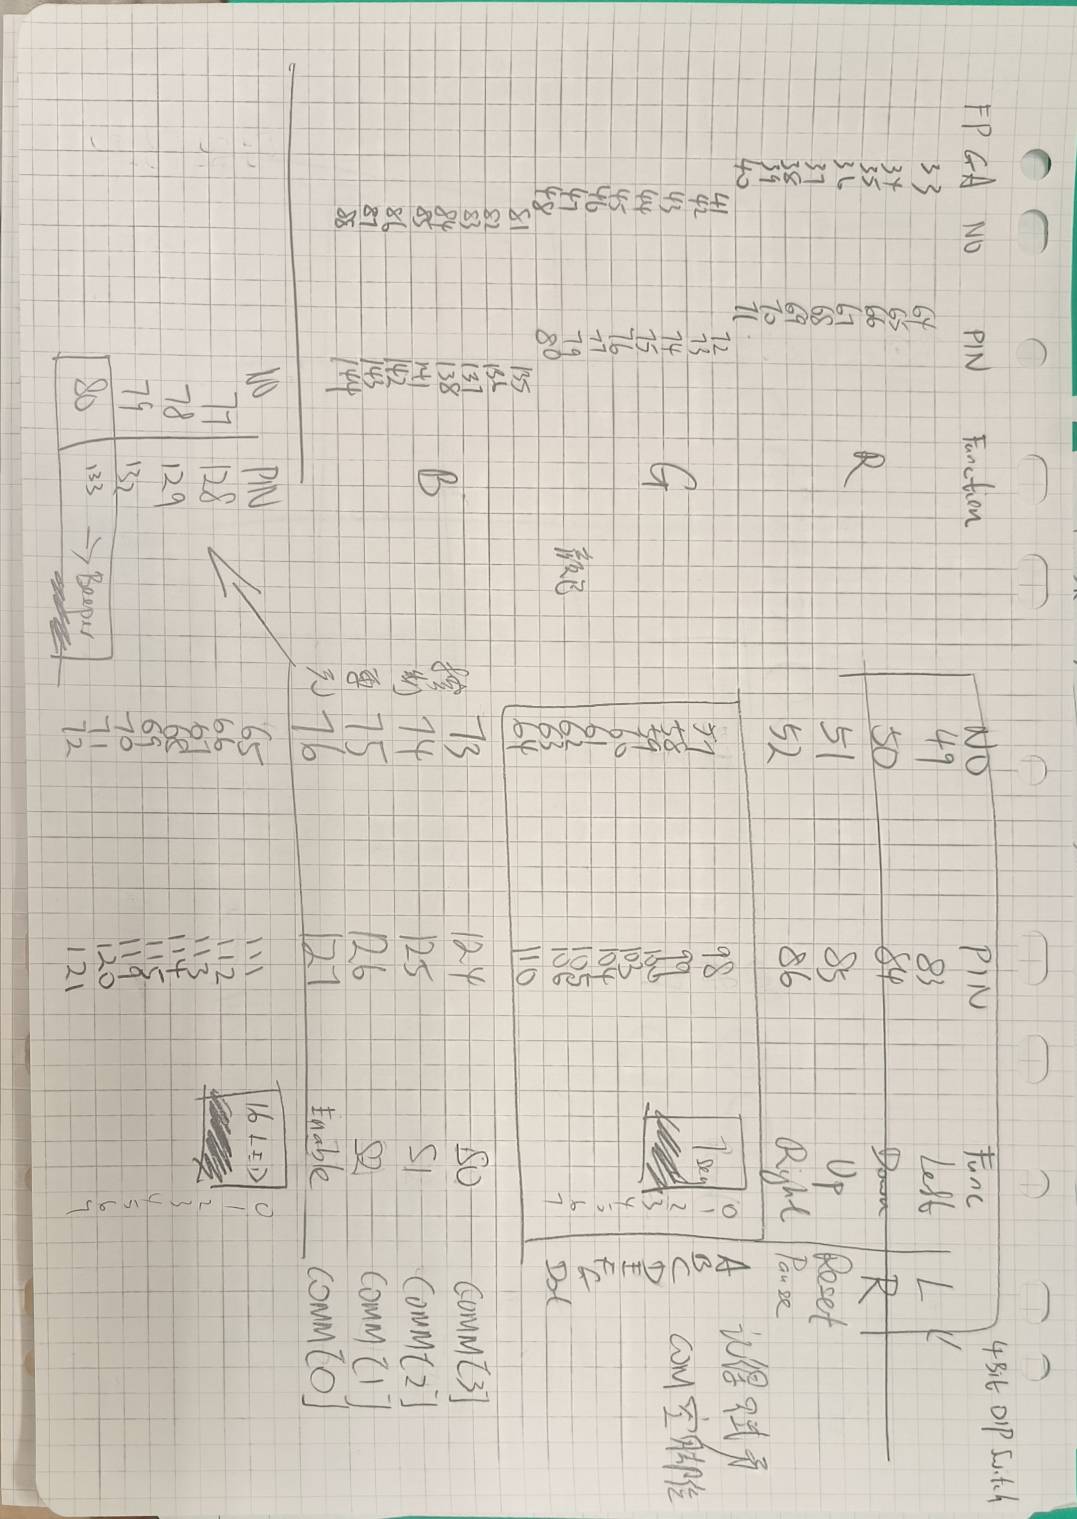 FPGA NO PIN Function
33 64
34 65
35 66
36 67
37 68
38 69
39 70
40 71
R
41 72
42 73
43 74
44 75
45 76
46 77
47 79
48 80
G
81 135
82 136
83 137
84 138
85 141
86 142
87 143
88 144
B
NO PIN
77 128
78 129
79 132
80 133 → Beeper
NO PIN Func 4 Bit DIP Switch
49 83 Left L
50 84 Down R
51 85 Up Reset
52 86 Right Pause
7 seg
57 98 0 A
58 99 1 B
59 100 2 C
60 103 3 D
61 104 4 E
62 105 5 F
63 106 6 G
64 110 7 Dot
COM
73 124 S0 COMM[3]
74 125 S1 COMM[2]
75 126 S2 COMM[1]
76 127 Enable COMM[0]
16 LED
65 111 0
66 112 1
67 113 2
68 114 3
69 115 4
70 119 5
71 120 6
72 121 7